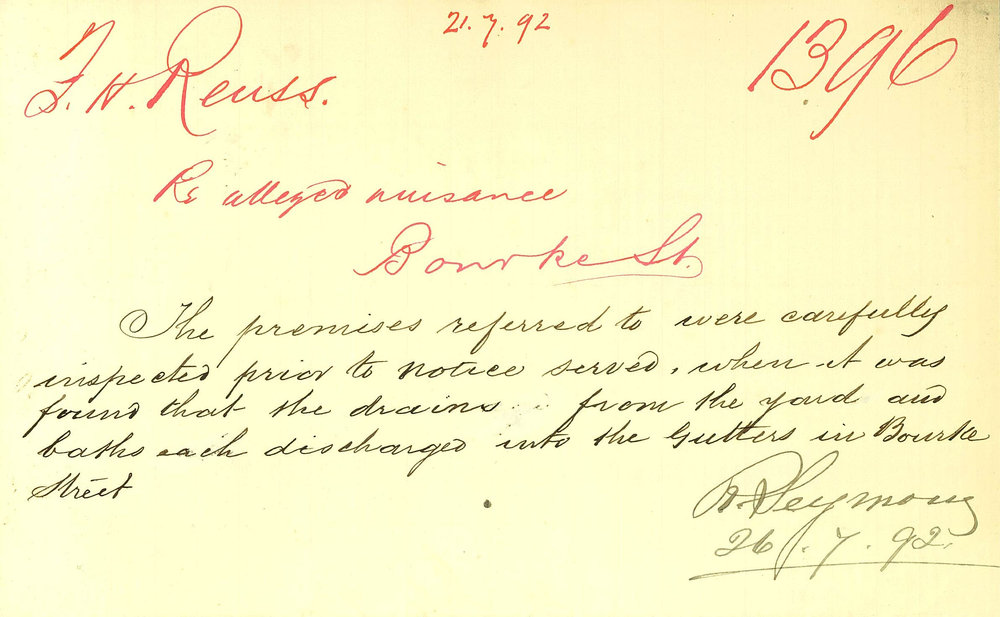 21.7.92
F. H. Reuss.
1396
Re alleged nuisance
Bourke St.
The premises referred to were carefully
inspected prior to notice served, when it was
found that the drains from the yard and
baths each discharged into the Gutters in Bourke
Street
R. Seymour
26.7.92.